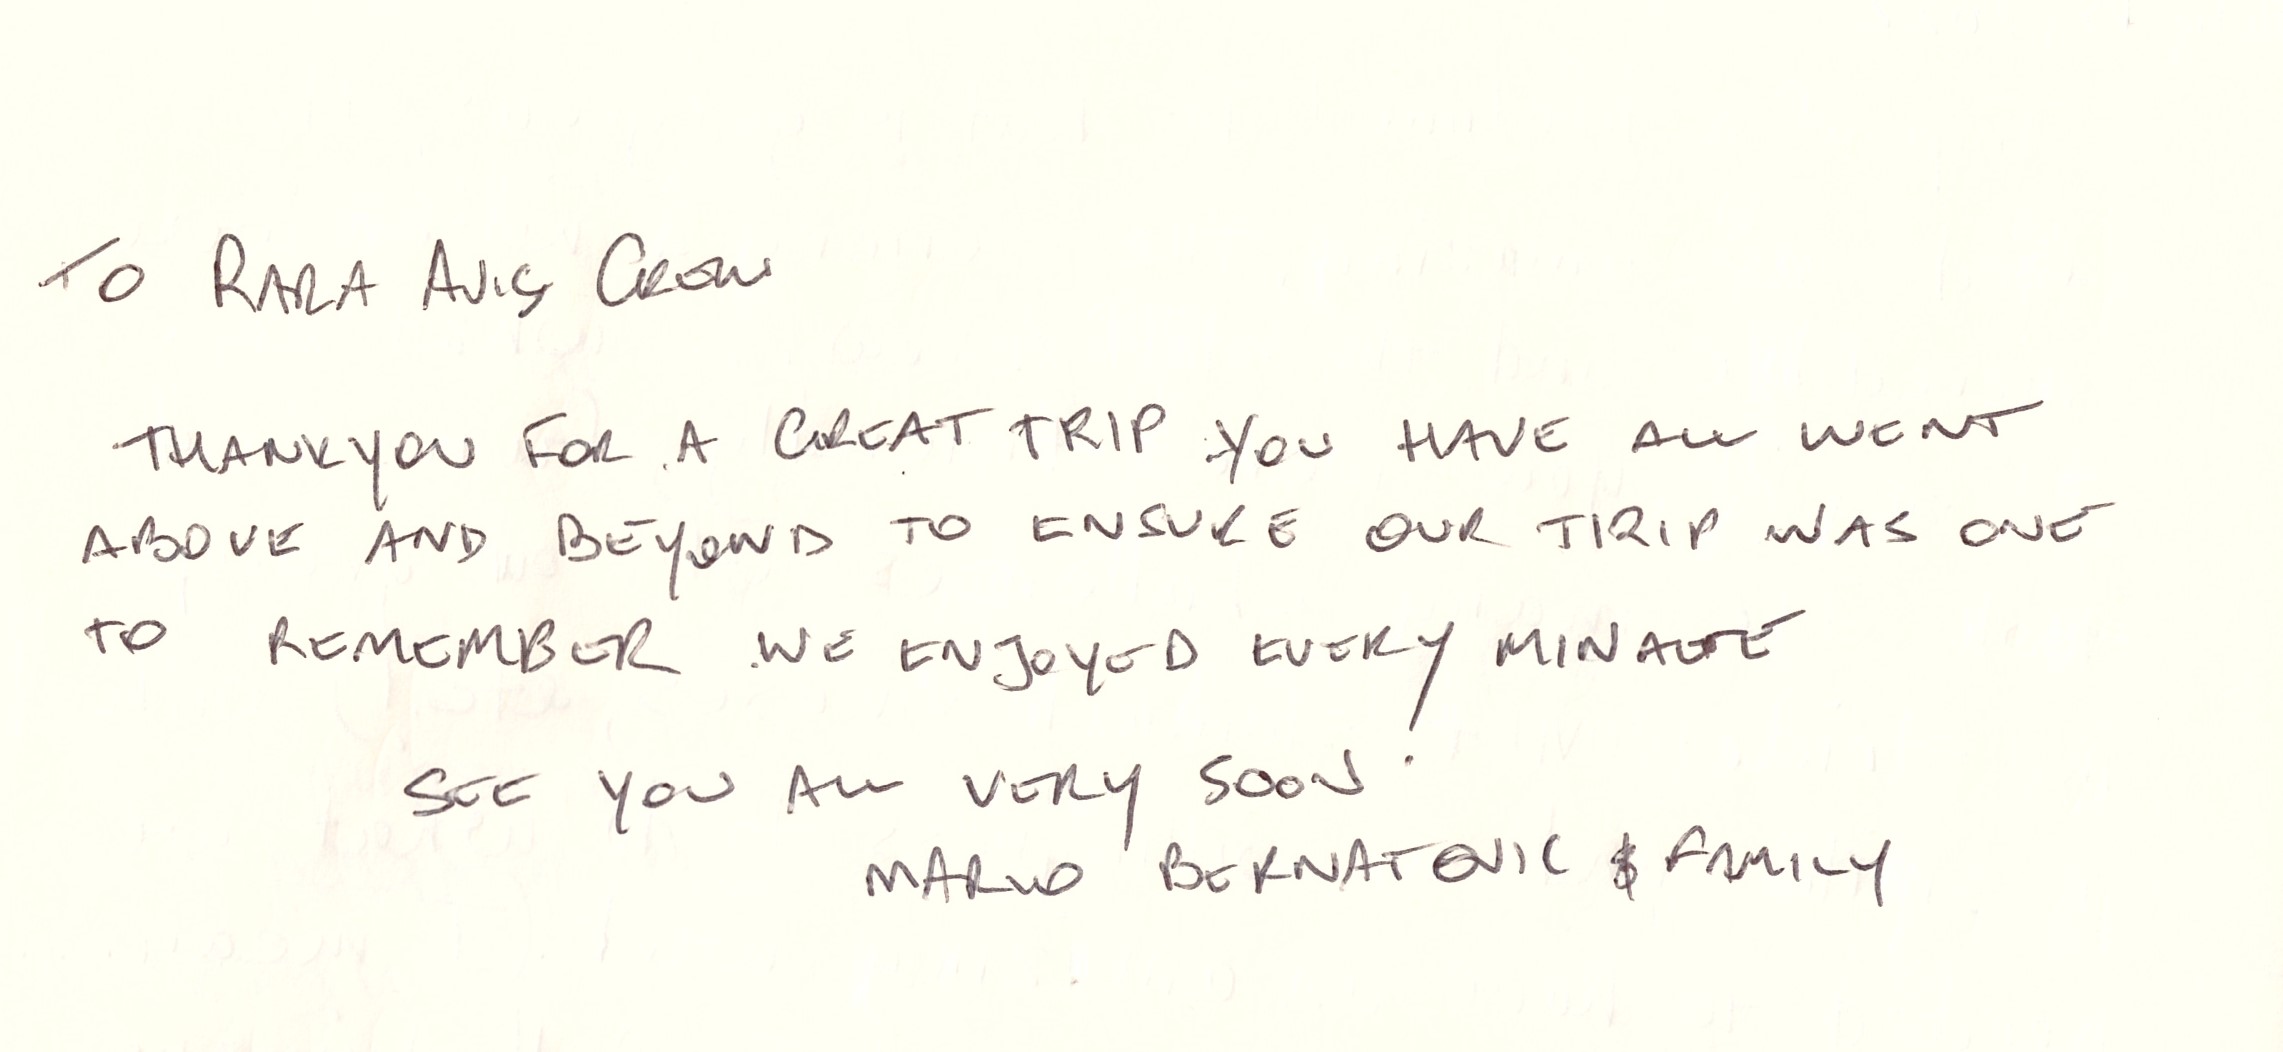 TO RARA AVIS CREW
THANKYOU FOR A GREAT TRIP YOU HAVE ALL WENT
ABOVE AND BEYOND TO ENSURE OUR TRIP WAS ONE
TO REMEMBER WE ENJOYED EVERY MINAUTE
SEE YOU ALL VERY SOON
BERNATOVIC & FAMILY